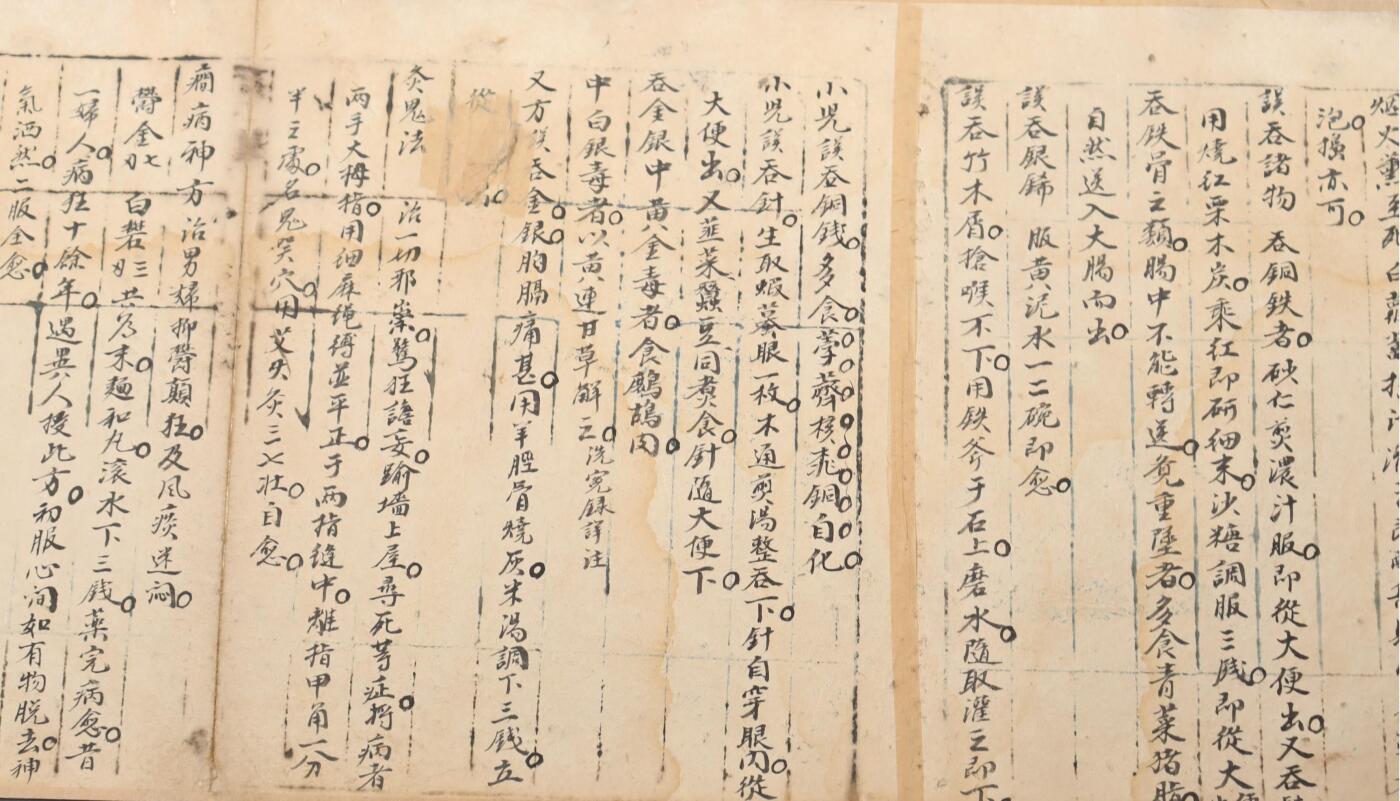 烟火熏至死白
泡搽亦可
誤吞諸物 吞銅鉄者砂仁煎濃汁服即從大便出又吞
用燒紅栗木炭乘紅即研細末沙糖調服三錢即從大便
吞鉄骨之類腸中不能轉送覺重墜者多食青菜猪脂
自然送入大腸而出
誤吞銀錦 服黄泥水一二碗即愈
誤吞竹木屑搶喉不下用鉄斧于石上磨水隨取灌之即下
小児誤吞銅錢多食荸薺核桃銅自化
小児誤吞針生取蝦蟇眼一枚木通煎湯整吞下針自穿眼內從
大便出又韮菜蠶豆同煮食針隨大便下
吞金銀中黄金毒者食鷓鴣肉
中白銀毒者以黄連甘草解之洗寃録詳注
又方誤吞金銀胸膈痛甚用羊脛骨燒灰米湯調下三錢立
從
灸鬼法 治一切邪祟驚狂譫妄踰墻上屋尋死等症將病者
兩手大拇指用細麻绳縛並平正于兩指縫中離指甲角一分
半之處名鬼哭穴用艾火灸三七壮自愈
癎病神方 治男婦抑欝顛狂及风痰迷悶
欝金七 白礬三 共为末麺和丸滚水下三錢薬完病愈昔
一婦人病狂十餘年遇異人授此方初服心间如有物脱去神
氣洒然二服全愈